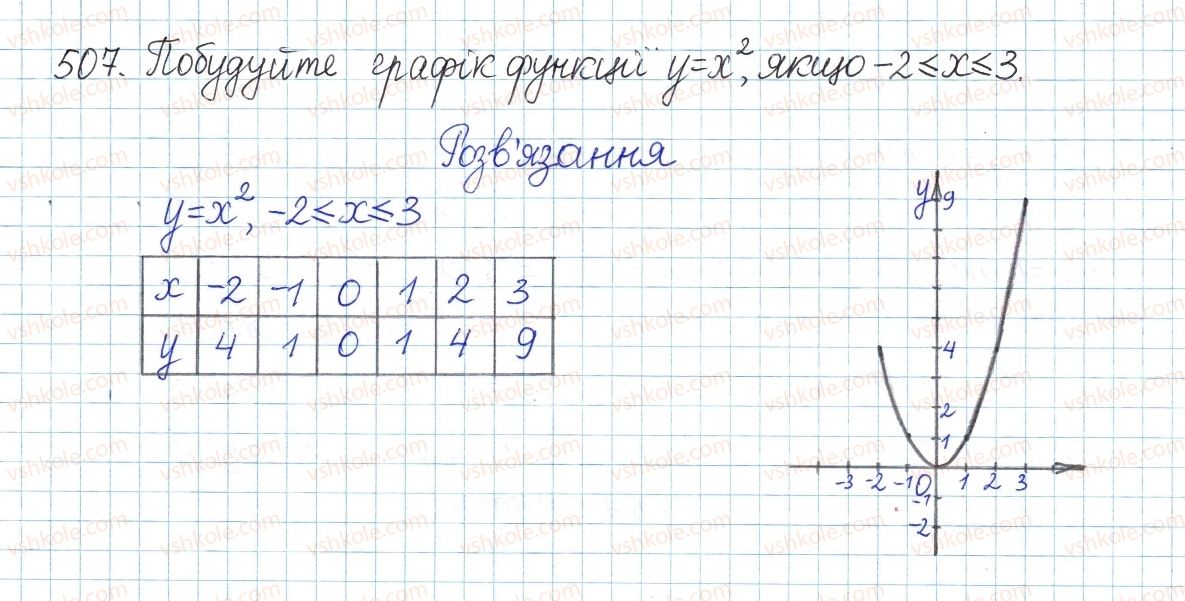 507. Побудуйте графік функції y=x², якщо -2≤x≤3.
Розв'язання
y=x², -2≤x≤3
x -2 -1 0 1 2 3
y 4 1 0 1 4 9
y 9
4
2
1
-3 -2 -1 0 1 2 3
-1
-2
vshkole.com